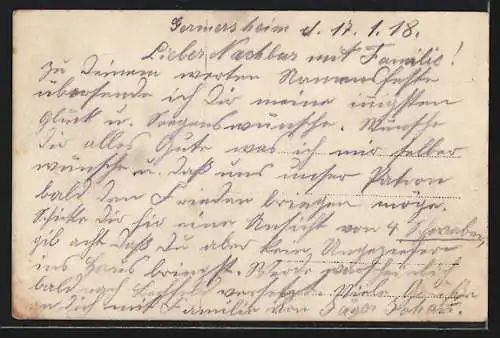 Germersheim d. 17. 1. 18.
Lieber Nachbar mit Familie!
Zu Deinem werten Namensfeste
übersende ich Dir meine innigsten
Glück u. Seegenswünsche. Wünsche
Dir alles Gute was ich mir selber
wünsche u. daß uns unser Patron
bald den Frieden bringen möge.
Schicke Dir hir eine Ansicht von 4 Schwaben
gib acht daß du aber kein Ungeziefer
ins Haus bringst. Werde wahrscheinlich
bald nach versetzt. Viele Grüße
an Dich mit Familie von